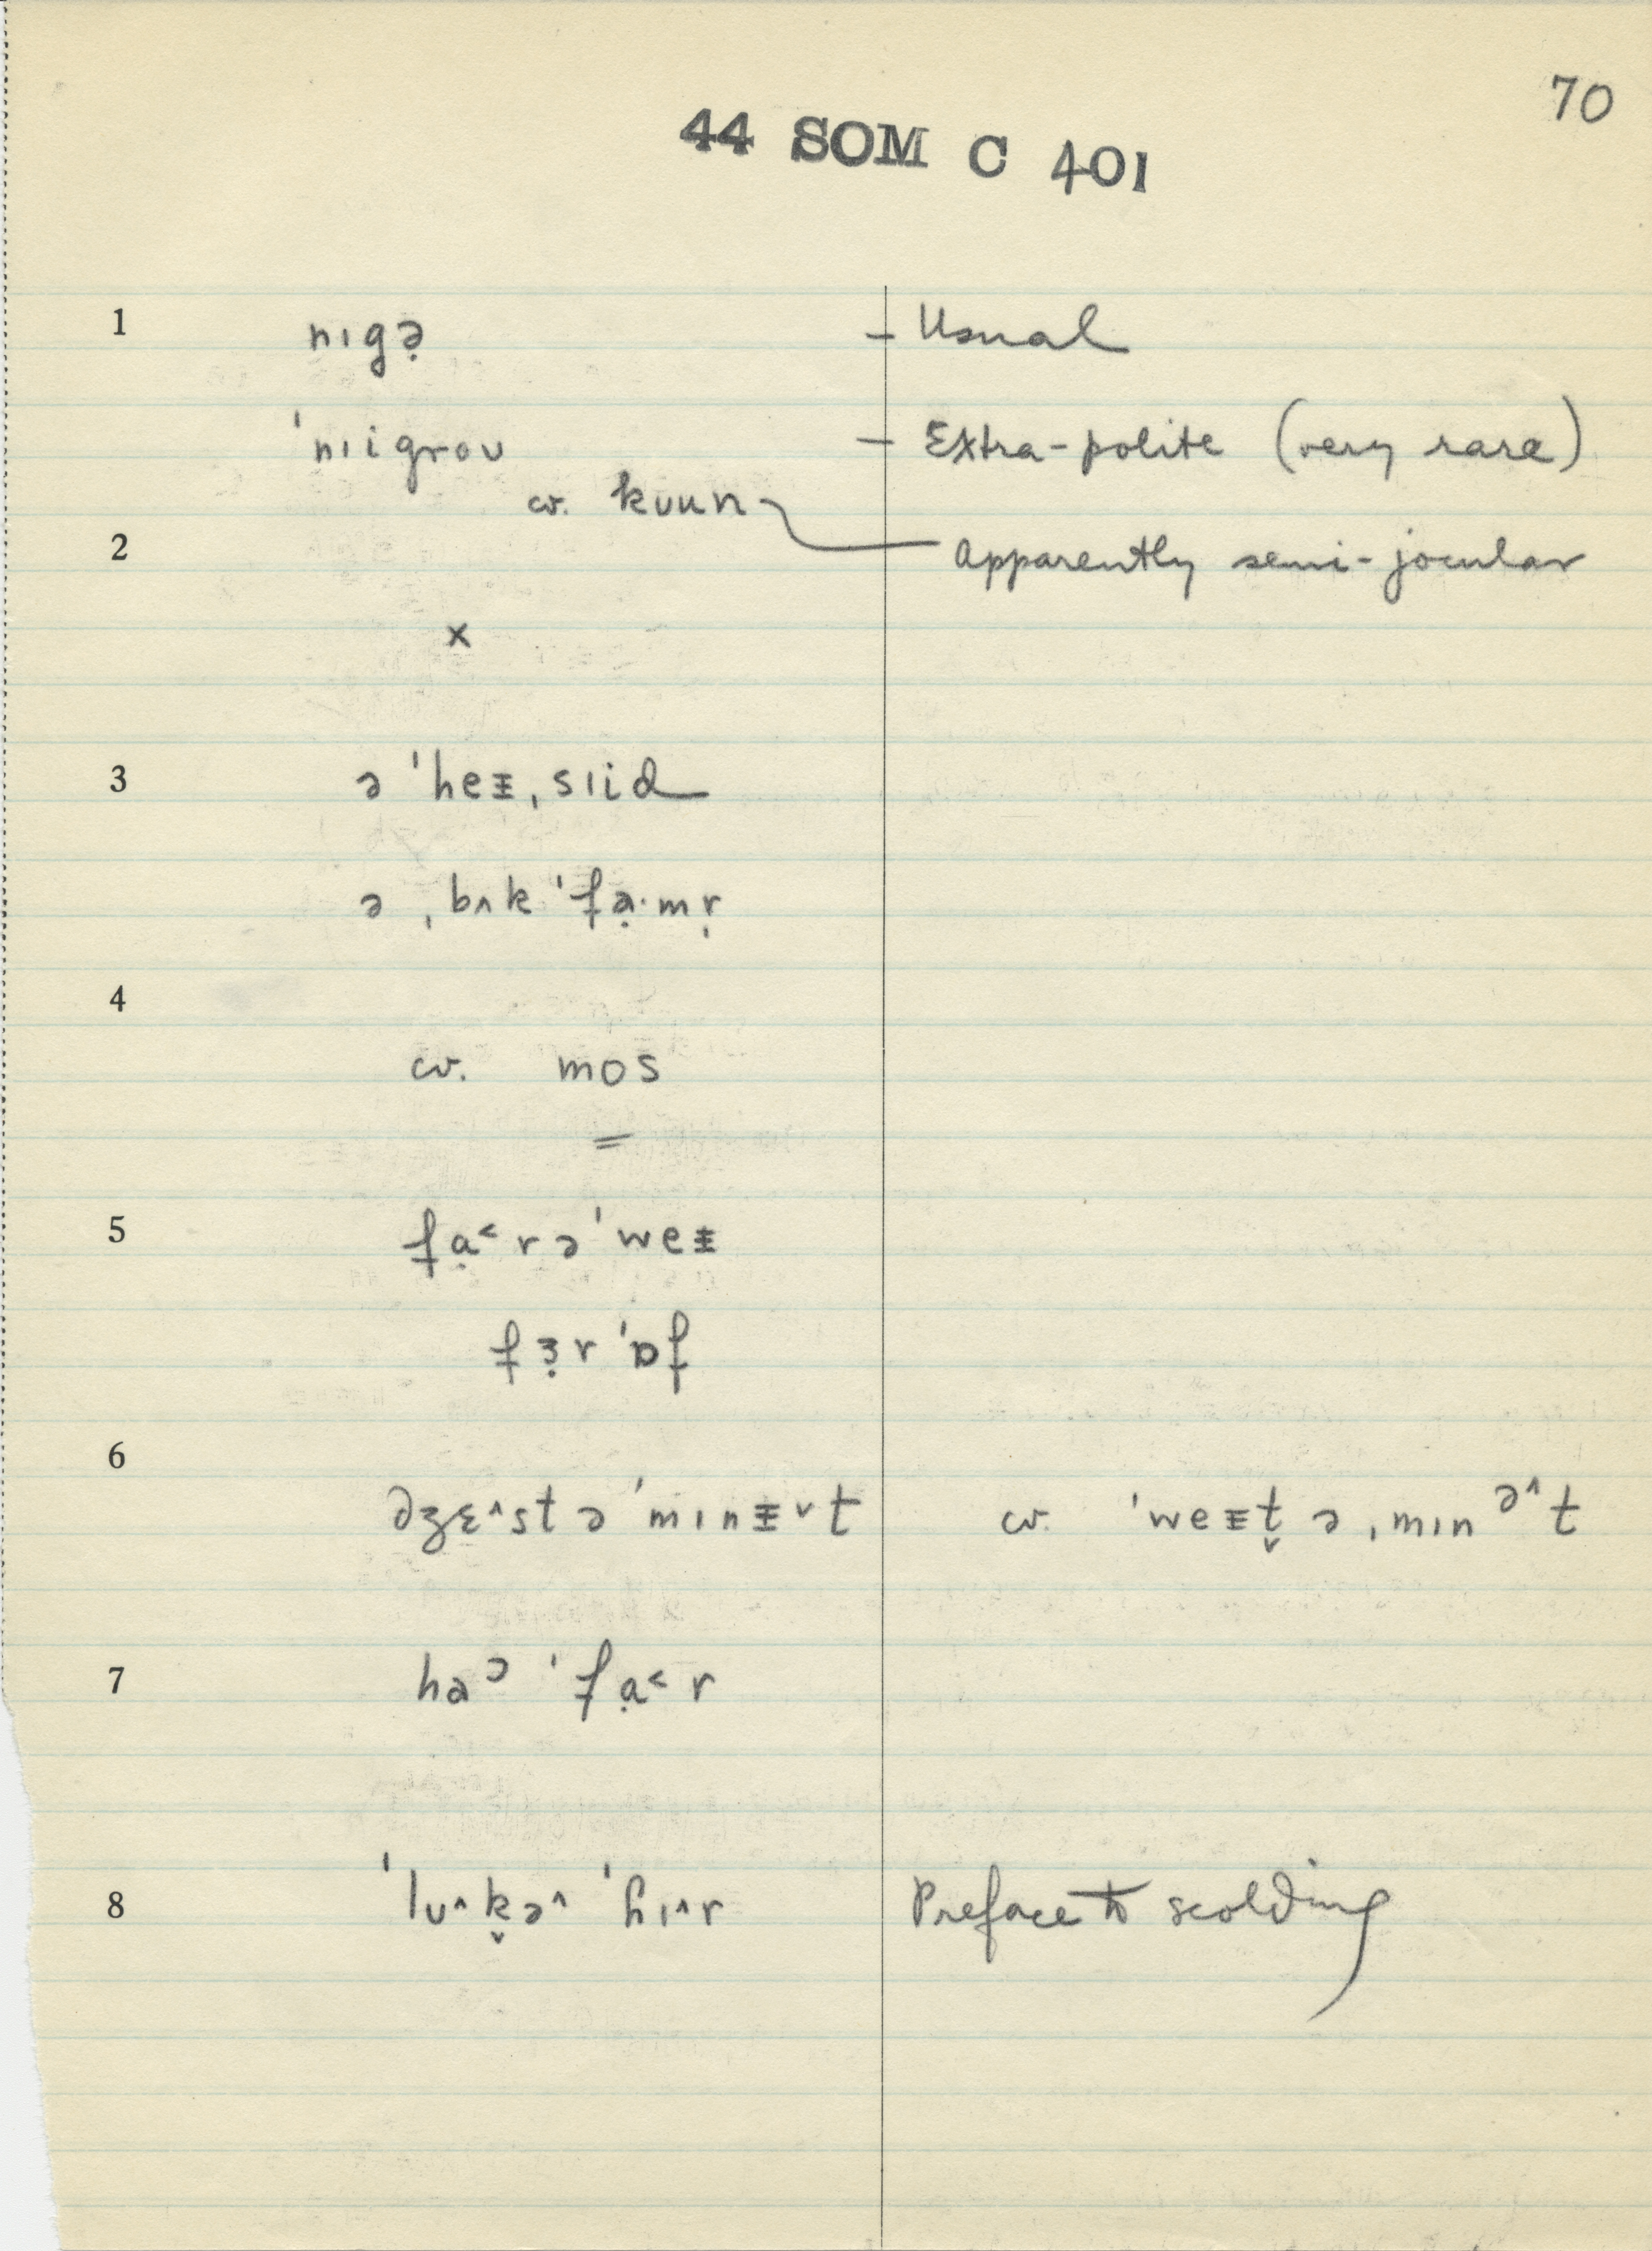 70
44 SOM C 401
1 nɪgə̣ – Usual
ˈnɪigroʊ – Extra-polite (very rare)
cv. kʊun
2 Apparently semi-jocular
x
3 ə ˈheᵻˌsɪid
ə ˌbʌk ˈfạ·mr̩
4
cv. mos
=
5 fạ˂rəˈweᵻ
fɜ̣rˈɒf
6 əʒɛ˄st ə ˈmɪnᵻ˅t cv. ˈweᵻt̬ ə ˌmɪnᵊ˄t
7 haᵓ ˈfạ˂r
8 ˈlʊ˄k̬ə˄ ˈhɪ˄r Preface to scolding